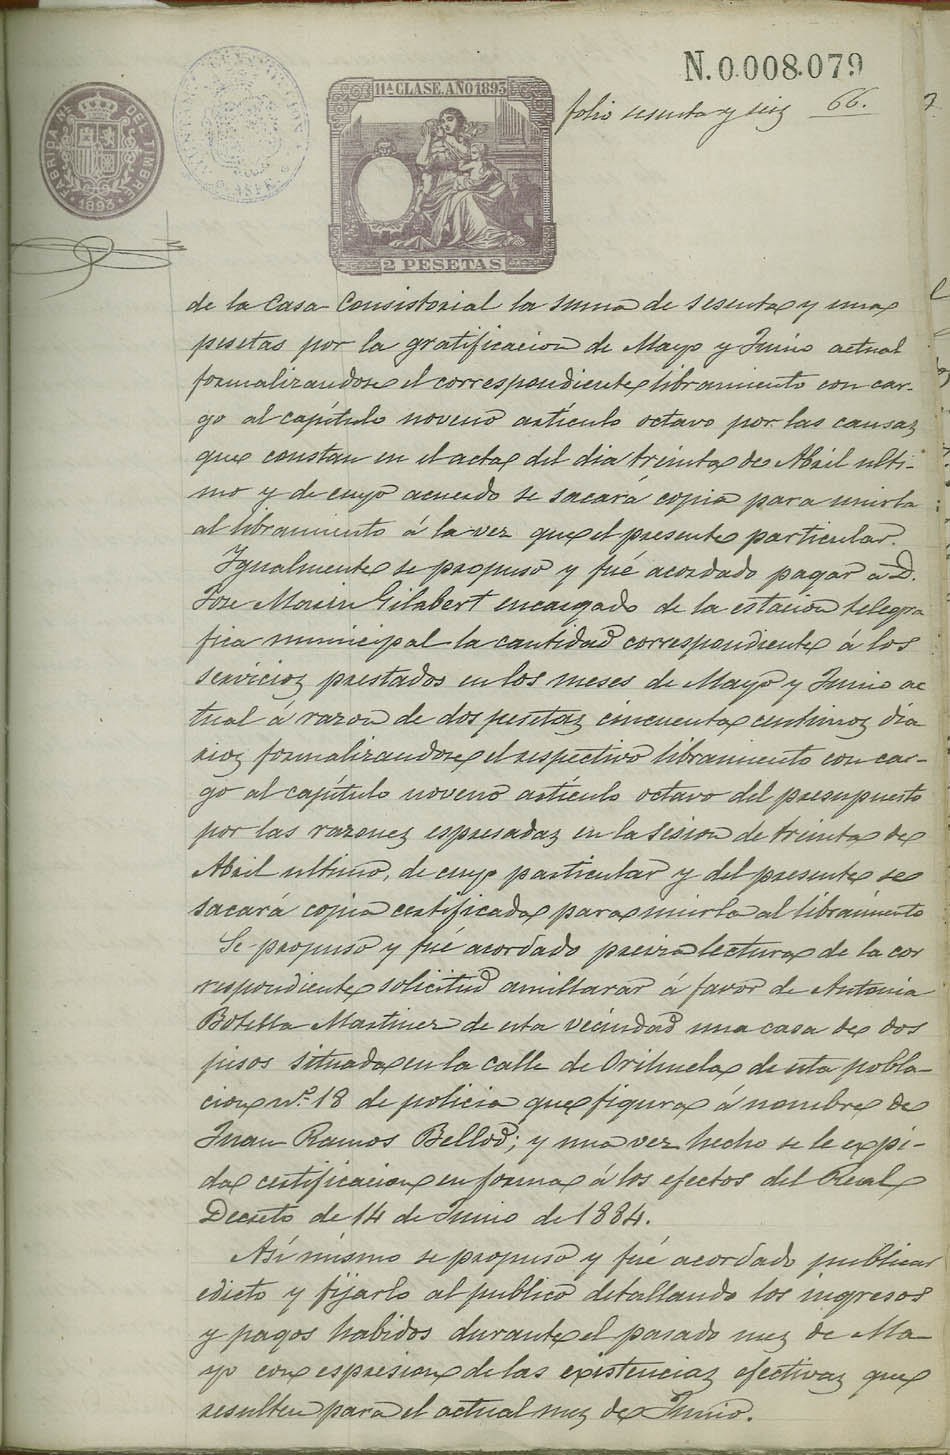 N.0.008.079
11ª CLASE.AÑO1893
FABRICA Nˡ DEL TIMBRE
1893
ASPE
folio sesenta y seis 66.
2 PESETAS
de la Casa Consistorial la suma de sesenta y una
pesetas por la gratificacion de Mayo y Junio actual
formalizandose el correspondiente libramiento con car-
go al capítulo noveno artículo octavo por las causas
que constan en el acta del dia treinta de Abril ulti-
mo y de cuyo acuerdo se sacará copia para unirla
al libramiento á la vez que el presente particular.
Igualmente se propuso y fué acordado pagar a D.
Jose Morin Gilabert encargado de la estacion telegra
fica municipal la cantidad correspondiente á los
servicios prestados en los meses de Mayo y Junio ac
tual á razon de dos pesetas cincuenta centimos dia
rios formalizandose el respectivo libramiento con car-
go al capítulo noveno artículo octavo del presupuesto
por las razones espresadas en la sesion de treinta de
Abril ultimo, de cuyo particular y del presente se
sacará copia certificada para unirla al libramiento
Se propuso y fué acordado previa lectura de la cor
respondiente solicitud amillarar á favor de Antonia
Botella Martinez de esta vecindad una casa de dos
pisos situada en la calle de Orihuela de esta pobla-
cion nº 18 de policia que figura á nombre de
Juan Ramos Bellod; y una vez hecho se le expi-
da certificacion en forma á los efectos del Real
Decreto de 14 de Junio de 1884.
Así mismo se propuso y fué acordado publicar
edicto y fijarlo al publico detallando los ingresos
y pagos habidos durante el pasado mes de Ma-
yo con espresion de las existencias efectivas que
resulten para el actual mes de Junio.